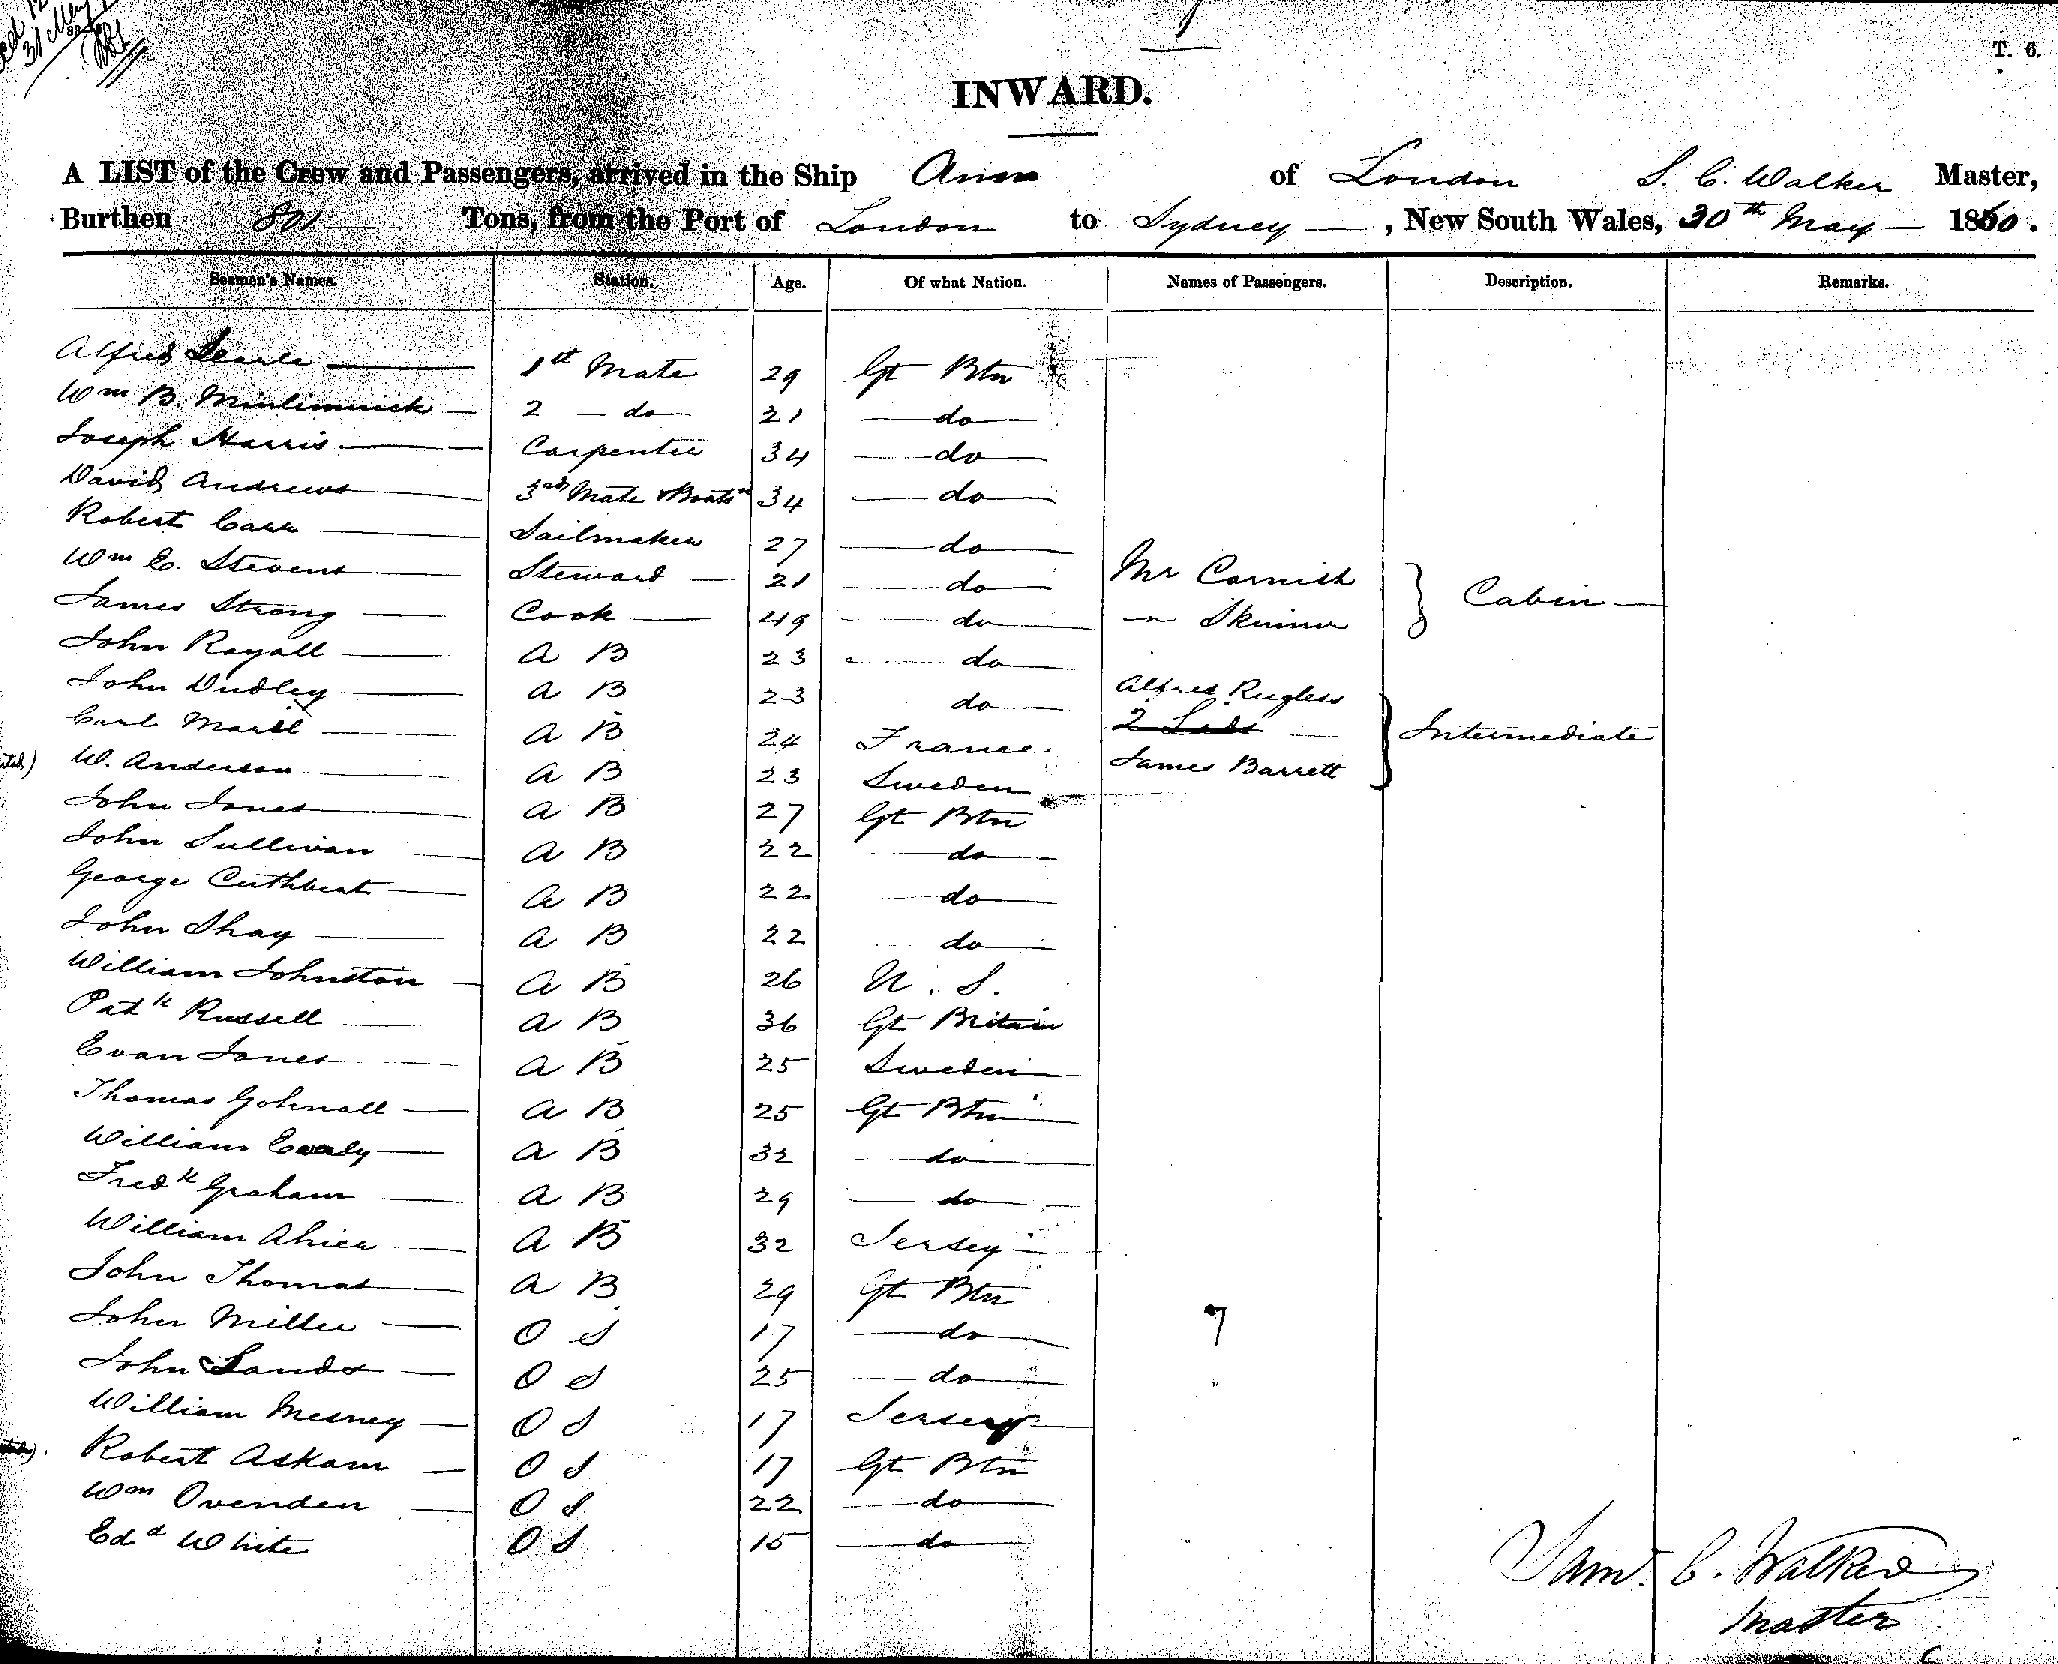 T. 6.
INWARD.
A LIST of the Crew and Passengers, arrived in the Ship Ann of London S. C. Walker Master,
Burthen 801 Tons, from the Port of London to Sydney, New South Wales, 30th May 1860.
Seamen's Names. Station. Age. Of what Nation. Names of Passengers. Description. Remarks.
Alfred Searle 1st Mate 29 Gt Btn
Wm B. 2 do 21 do
Joseph Harris Carpenter 34 do
David Andrews 3rd Mate & Boatsn 34 do
Robert Carr Sailmaker 27 do
Wm E. Stevens Steward 21 do Mr Cornish Cabin
James Strong Cook 49 do " Skinner
John Royall A B 23 do
John Dudley A B 23 do Alfred Rugless
Carl A B 24 France 2 Lads Intermediate
W. Anderson A B 23 Sweden James Barrett
John Jones A B 27 Gt Btn
John Sullivan A B 22 do
George Cuthbert A B 22 do
John Shay A B 22 do
William Johnston A B 26 U. S.
Patk Russell A B 36 Gt Britain
Evan Jones A B 25 Sweden
Thomas A B 25 Gt Btn
William A B 32 do
Fredk Graham A B 29 do
William Ahier A B 32 Jersey
John Thomas A B 29 Gt Btn
John Miller O S 17 do 7
John Sands O S 25 do
William Mesney O S 17 Jersey
Robert Askam O S 17 Gt Btn
Wm Ovenden O S 22 do
Edd White O S 15 do
Saml. C. Walker
Master